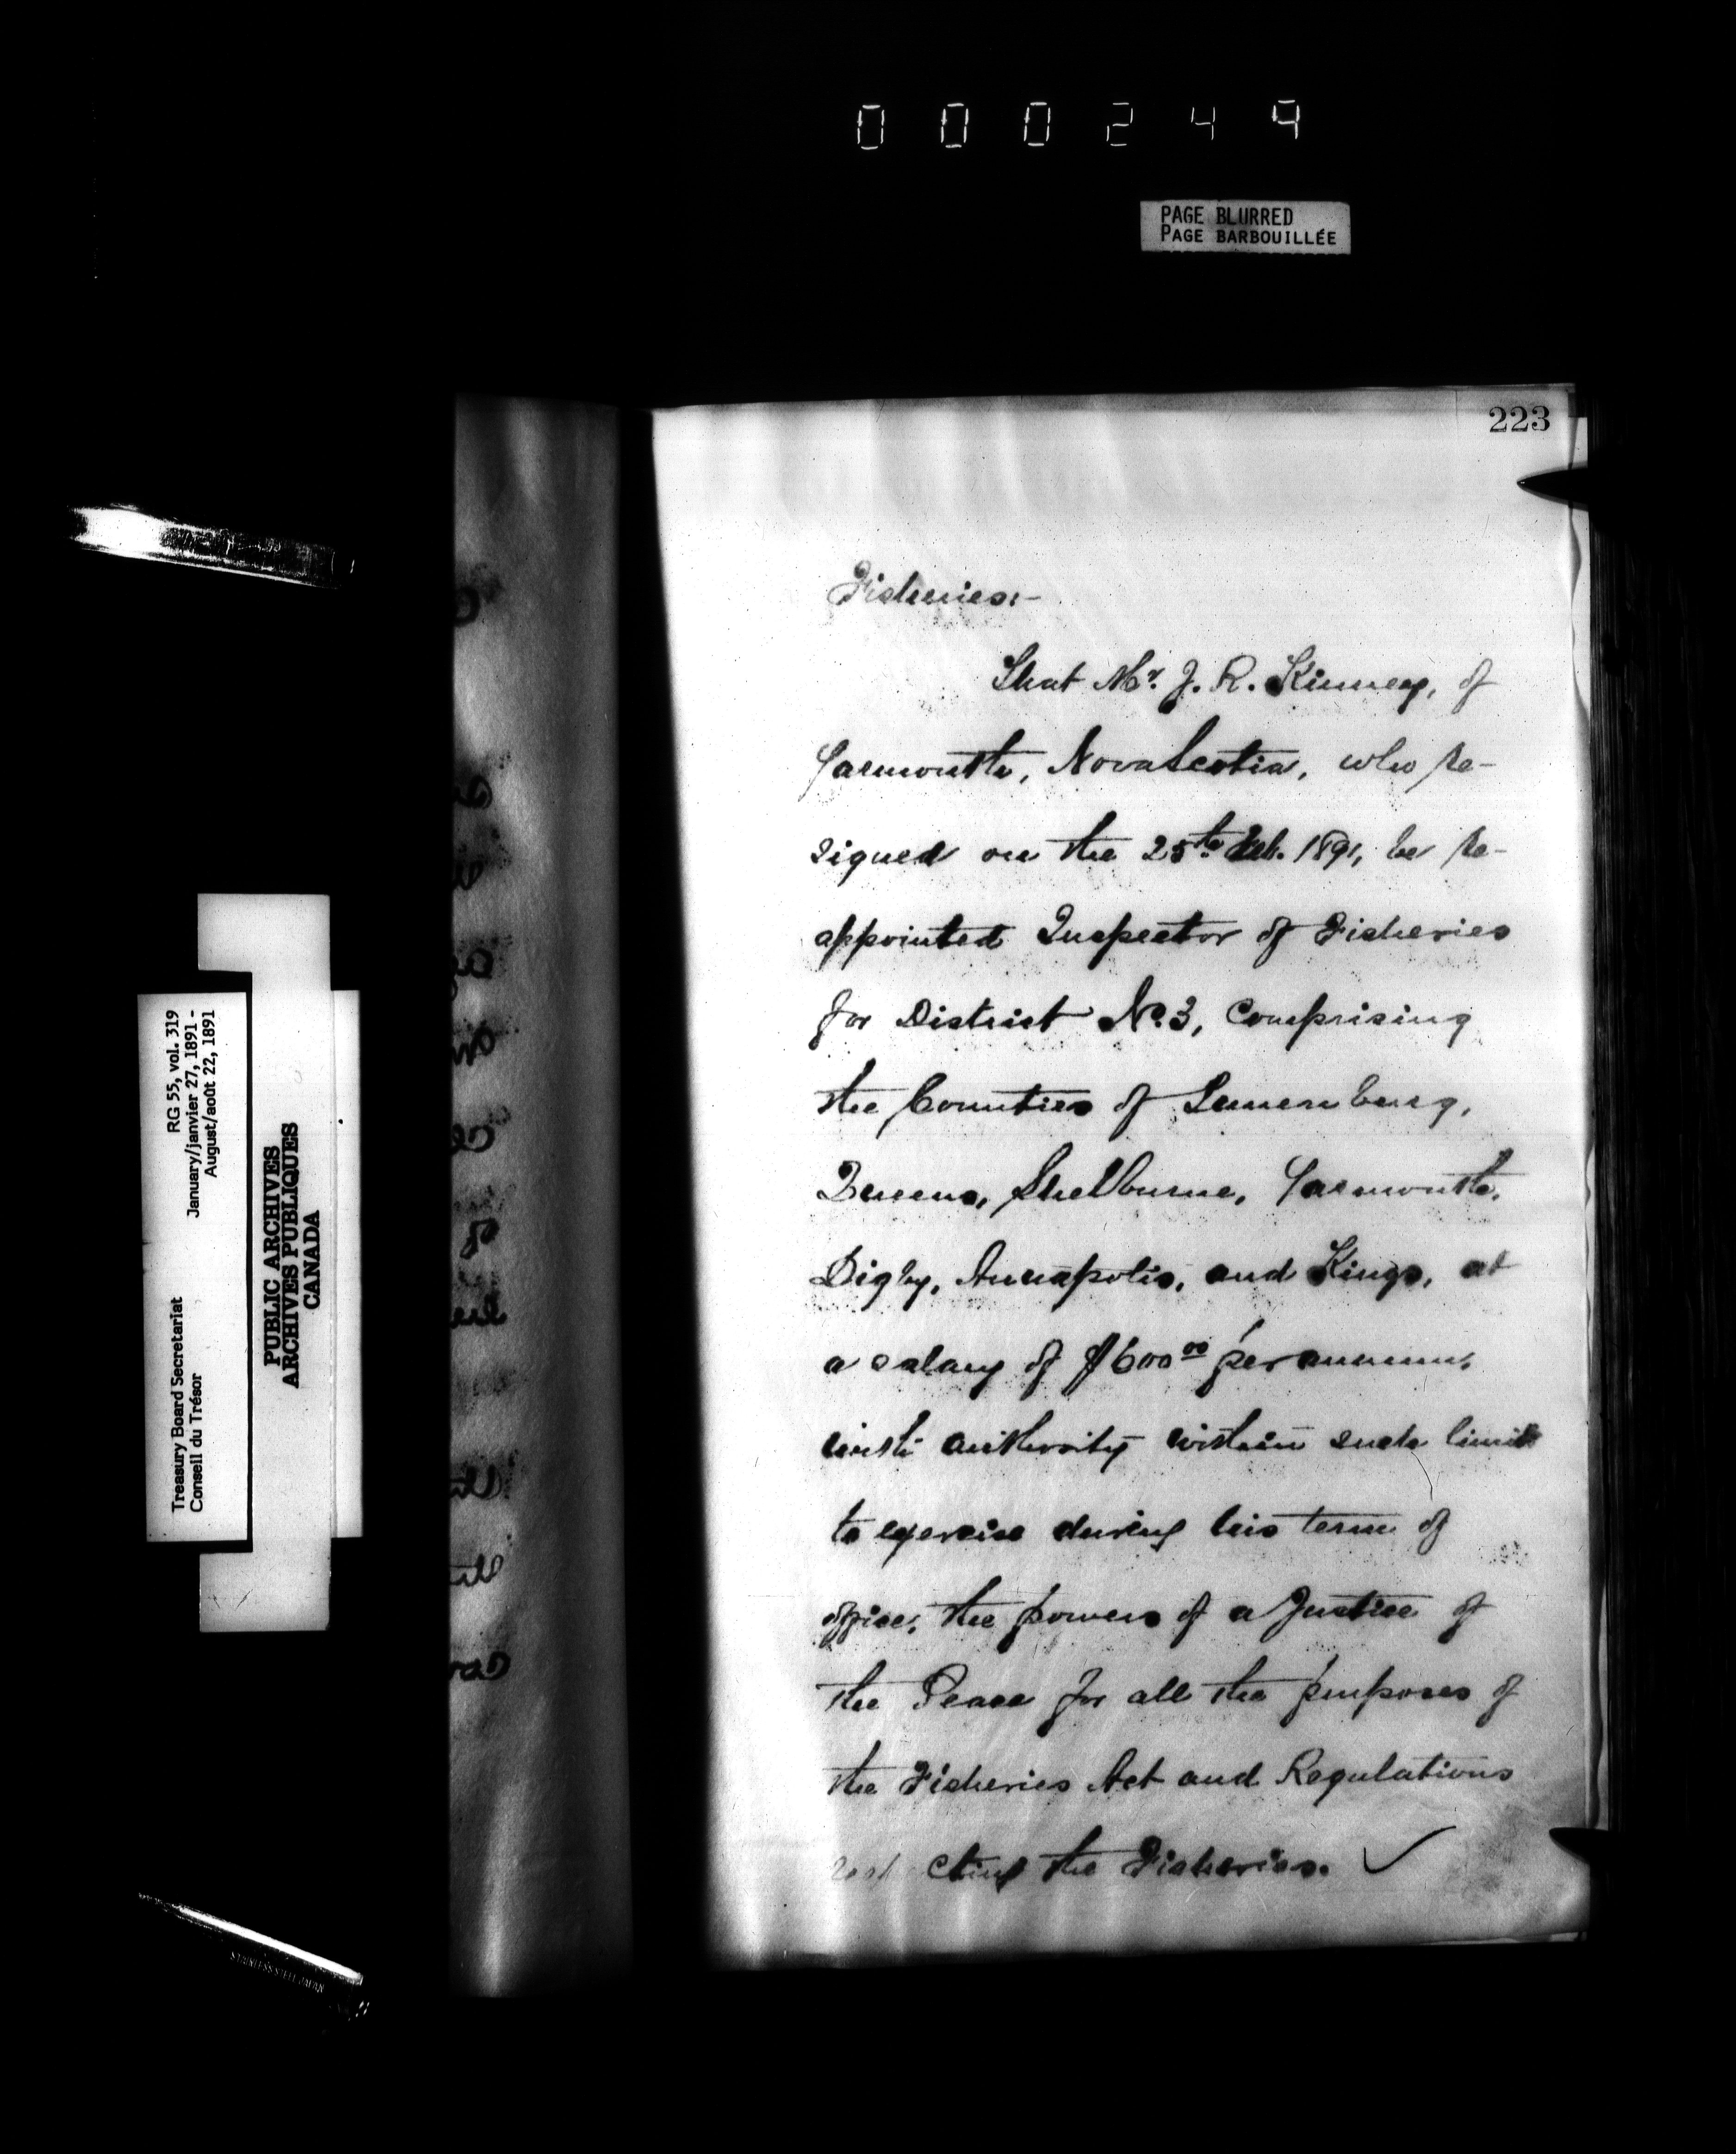 000249
PAGE BLURRED
PAGE BARBOUILLÉE
223
Fisheries:-
That Mr. J. R. Kinney, of
Yarmouth, Nova Scotia, who re-
signed on the 25th Feb. 1891, be re-
appointed Inspector of Fisheries
for District No. 3, Comprising
the Counties of Lunenburg,
Queens, Shelburne, Yarmouth,
Digby, Annapolis, and Kings, at
a salary of $600 00 per annum,
with authority within such limits
to exercise during his term of
office, the powers of a Justice of
the Peace for all the purposes of
the Fisheries Act and Regulations
cting the Fisheries. ✓
RG 55, vol. 319
January/janvier 27, 1891 -
August/août 22, 1891
Treasury Board Secretariat
Conseil du Trésor
PUBLIC ARCHIVES
ARCHIVES PUBLIQUES
CANADA
STAINLESS STEEL JAPAN